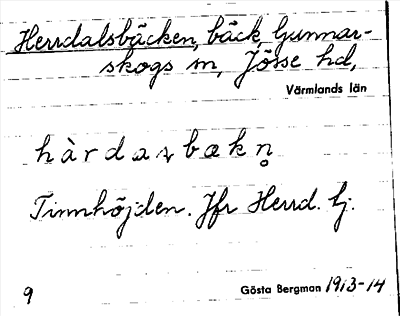 Herrdalsbäcken, bäck, Gunnar-
skogs sn, Jösse hd,
Värmlands län
hàrdasbækn̥
Timhöjden. Jfr Herrd. tj.
9 Gösta Bergman 1913-14